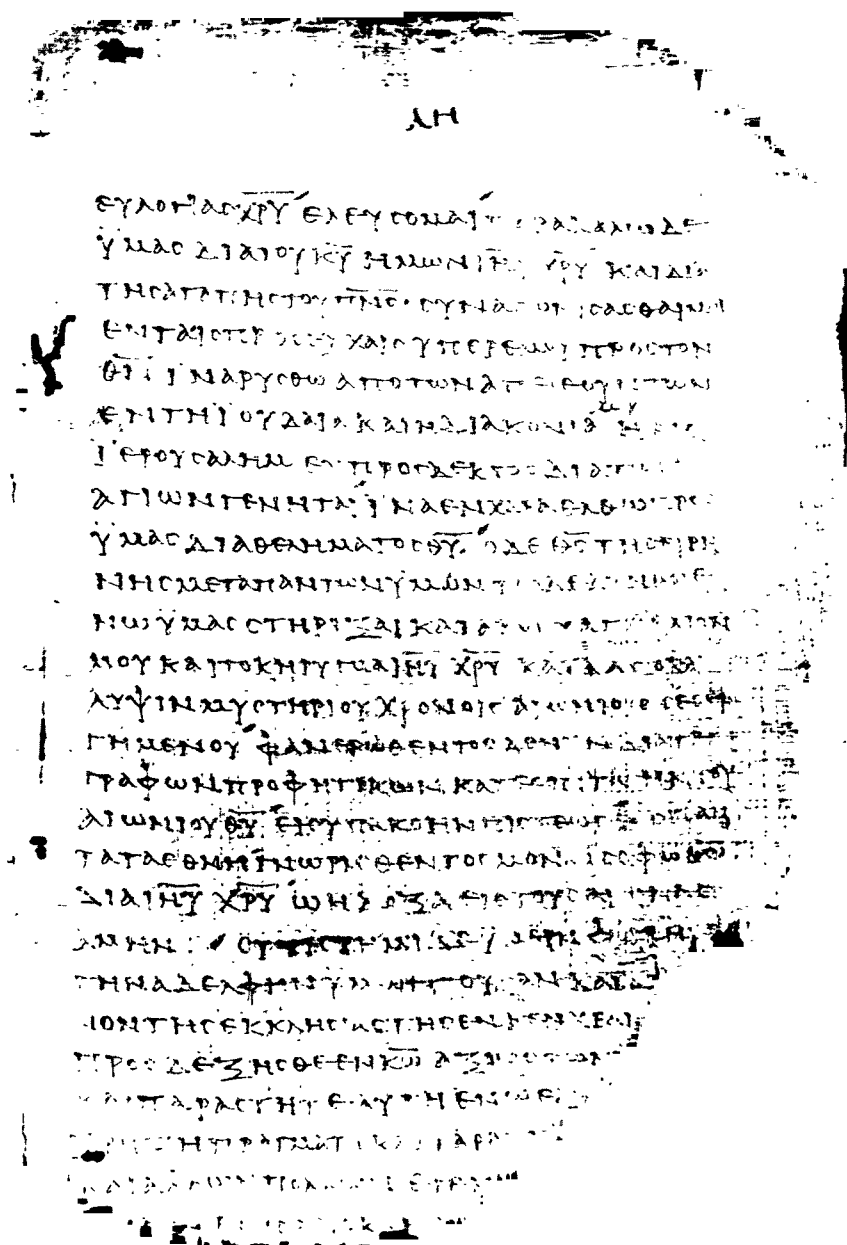 ΛΗ
ΕΥΛΟΓΙΑϹ ΧΡΥ ΕΛΕΥϹΟΜΑΙ ΠΑΡΑΚΑΛΩ ΔΕ
ΥΜΑϹ ΔΙΑ ΤΟΥ ΚΥ ΗΜΩΝ ΙΗΥ ΧΡΥ ΚΑΙ ΔΙΑ
ΤΗϹ ΑΓΑΠΗϹ ΤΟΥ ΠΝϹ ϹΥΝΑΓΩΝΙϹΑϹΘΑΙ ΜΟΙ
ΕΝ ΤΑΙϹ ΠΡΟϹΕΥΧΑΙϹ ΥΠΕΡ ΕΜΟΥ ΠΡΟϹ ΤΟΝ
ΘΝ ΙΝΑ ΡΥϹΘΩ ΑΠΟ ΤΩΝ ΑΠΕΙΘΟΥΝΤΩΝ
ΕΝ ΤΗ ΙΟΥΔΑΙΑ ΚΑΙ Η ΔΙΑΚΟΝΙΑ ΜΟΥ Η ΕΙϹ
ΙΕΡΟΥϹΑΛΗΜ ΕΥΠΡΟϹΔΕΚΤΟϹ ΔΙΑ ΤΩΝ
ΑΓΙΩΝ ΓΕΝΗΤΑΙ ΙΝΑ ΕΝ ΧΑΡΑ ΕΛΘΩ ΠΡΟϹ
ΥΜΑϹ ΔΙΑ ΘΕΛΗΜΑΤΟϹ ΘΥ Ο ΔΕ ΘϹ ΤΗϹ ΕΙΡΗ
ΝΗϹ ΜΕΤΑ ΠΑΝΤΩΝ ΥΜΩΝ ΤΩ ΔΕ ΔΥΝΑΜΕ
ΝΩ ΥΜΑϹ ϹΤΗΡΙΞΑΙ ΚΑΤΑ ΤΟ ΕΥΑΓΓΕΛΙΟΝ
ΜΟΥ ΚΑΙ ΤΟ ΚΗΡΥΓΜΑ ΙΗΥ ΧΡΥ ΚΑΤΑ ΑΠΟΚΑ
ΛΥΨΙΝ ΜΥϹΤΗΡΙΟΥ ΧΡΟΝΟΙϹ ΑΙΩΝΙΟΙϹ ϹΕϹΕΙ
ΓΗΜΕΝΟΥ ΦΑΝΕΡΩΘΕΝΤΟϹ ΔΕ ΝΥΝ ΔΙΑ ΤΕ
ΓΡΑΦΩΝ ΠΡΟΦΗΤΙΚΩΝ ΚΑΤ ΕΠΙΤΑΓΗΝ ΤΟΥ
ΑΙΩΝΙΟΥ ΘΥ ΕΙϹ ΥΠΑΚΟΗΝ ΠΙϹΤΕΩϹ ΕΙϹ ΠΑΝ
ΤΑ ΤΑ ΕΘΝΗ ΓΝΩΡΙϹΘΕΝΤΟϹ ΜΟΝΩ ϹΟΦΩ ΘΩ
ΔΙΑ ΙΗΥ ΧΡΥ Ω Η ΔΟΞΑ ΕΙϹ ΤΟΥϹ ΑΙΩΝΑϹ
ΑΜΗΝ ϹΥΝΙϹΤΗΜΙ ΔΕ ΥΜΕΙΝ ΦΟΙΒΗΝ
ΤΗΝ ΑΔΕΛΦΗΝ ΥΜΩΝ ΟΥϹΑΝ ΚΑΙ ΔΙΑ
ΚΟΝΟΝ ΤΗϹ ΕΚΚΛΗϹΙΑϹ ΤΗϹ ΕΝ ΚΕΝΧΡΕΑΙϹ
ΠΡΟϹΔΕΞΗϹΘΕ ΕΝ ΚΩ ΑΞΙΩϹ ΤΩΝ
ΚΑΙ ΠΑΡΑϹΤΗΤΕ ΑΥΤΗ ΕΝ Ω ΕΑΝ
ΠΡΑΓΜΑΤΙ ΚΑΙ ΓΑΡ
ΚΑΙ ΑΛΛΩΝ ΠΟΛΛΩΝ